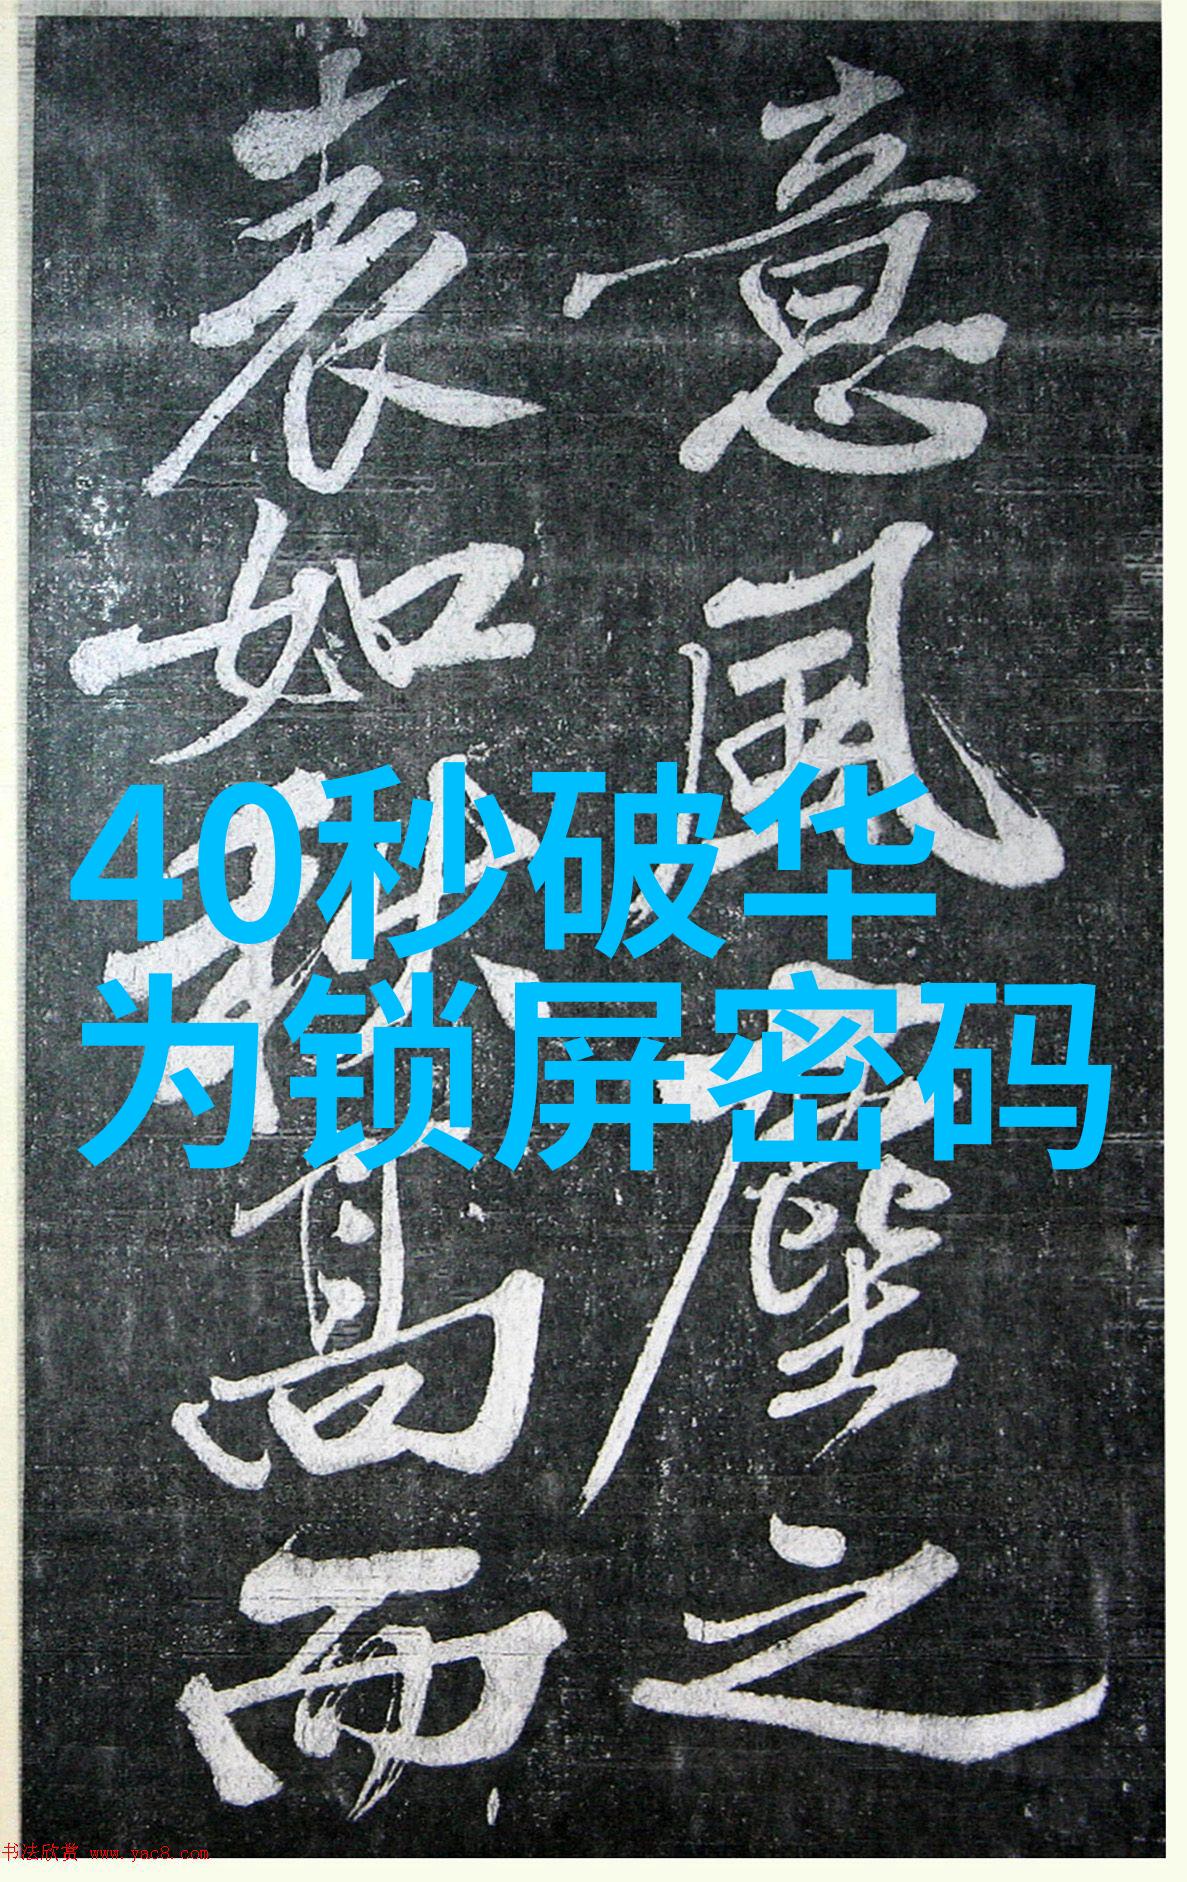 意風塵之
表如秋高而
40秒破华
为锁屏密码
书法欣赏 www.yac8.com